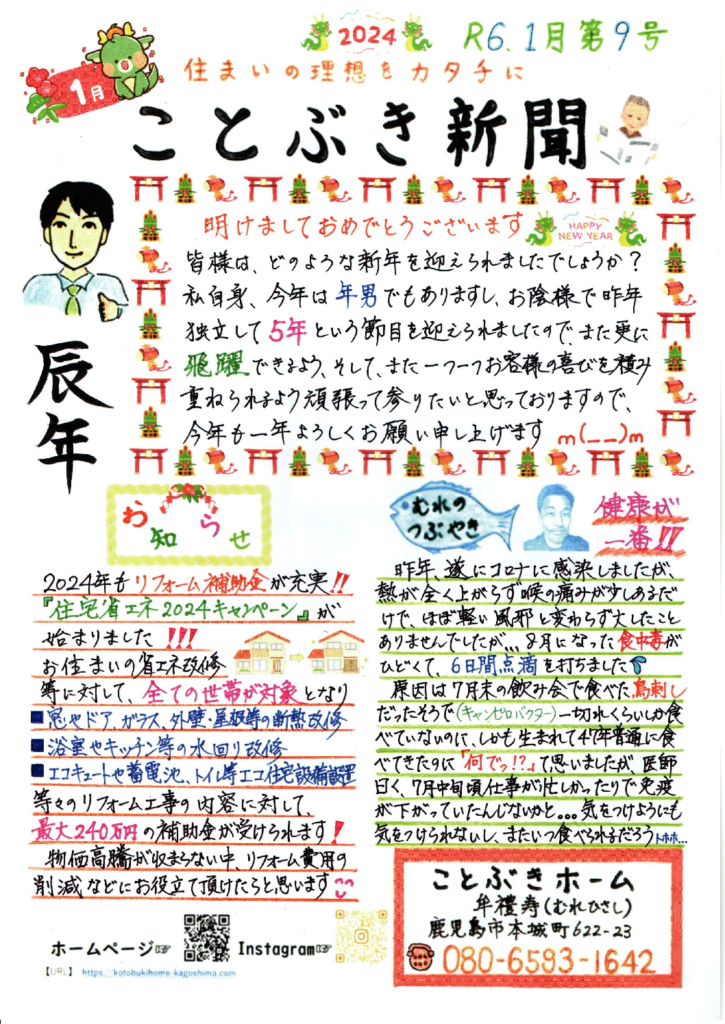 2024
R6.1月第9号
1月
住まいの理想をカタチに
ことぶき新聞
明けましておめでとうございます
HAPPY
NEW YEAR
皆様は、どのような新年を迎えられましたでしょうか？
私自身、今年は年男でもありますし、お陰様で昨年
独立して5年という節目を迎えられましたので、また更に
飛躍できるよう、そして、また一つ一つお客様の喜びを積み
重ねられるよう頑張って参りたいと思っておりますので、
今年も一年よろしくお願い申し上げます m(__)m
辰年
お知らせ
2024年もリフォーム補助金が充実!!
『住宅省エネ2024キャンペーン』が
始まりました!!!
お住まいの省エネ改修
等に対して、全ての世帯が対象となり
■窓やドア、ガラス、外壁・屋根等の断熱改修
■浴室やキッチン等の水回り改修
■エコキュートや蓄電池、トイレ等エコ住宅設備設置
等々のリフォーム工事の内容に対して、
最大240万円の補助金が受けられます!
物価高騰が収まらない中、リフォーム費用の
削減などにお役立て頂けたらと思います
むれの
つぶやき
健康が
一番!!
昨年、遂にコロナに感染しましたが、
熱が全く上がらず喉の痛みが少しあるだ
けで、ほぼ軽い風邪と変わらず大したこと
ありませんでしたが...8月になった食中毒が
ひどくて、6日間点滴を打ちました
原因は7月末の飲み会で食べた鳥刺し
だったそうで(キャンピロバクター)一切れくらいしか食
べていないのに、しかも生まれて47年普通に食
べてきたのに「何でっ!?」て思いましたが、医師
曰く、7月中旬頃仕事が忙しかったりで免疫
が下がっていたんじゃないかと...気をつけようにも
気をつけられないし、またいつ食べられるだろうトホホ...
ことぶきホーム
牟禮寿(むれひさし)
鹿児島市本城町622-23
080-6593-1642
ホームページ☞
Instagram☞
【URL】 https://kotobukihome-kagoshima.com